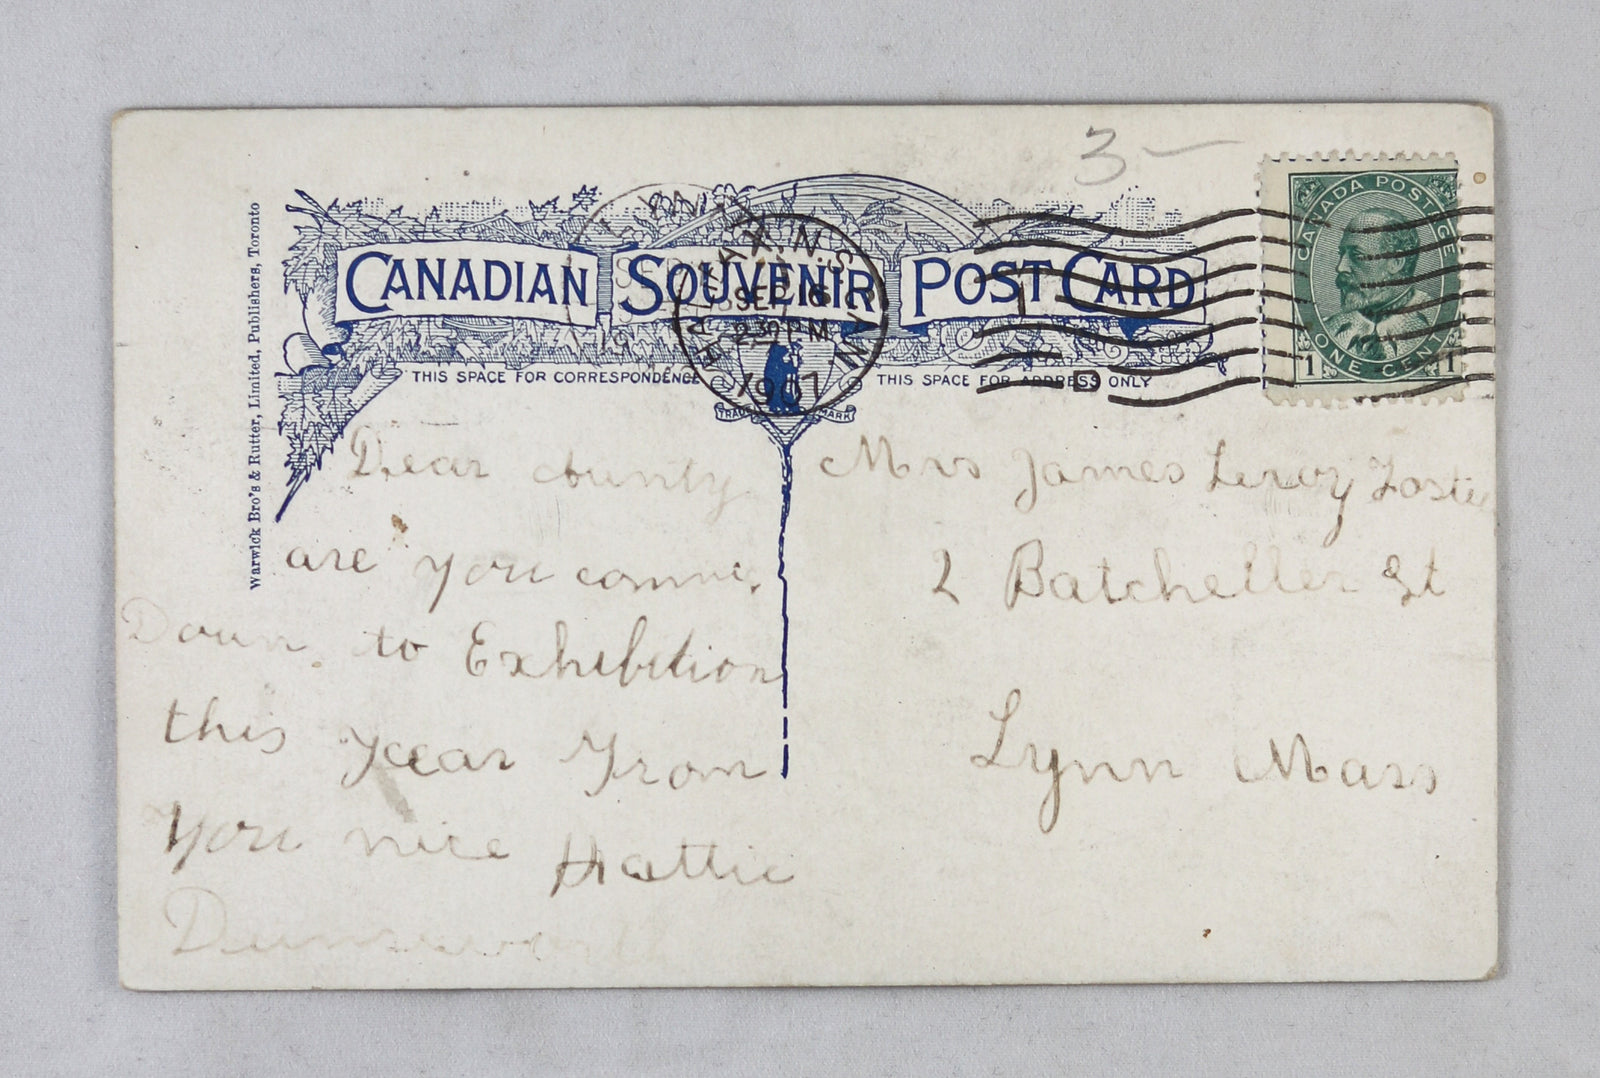 3 —
CANADIAN SOUVENIR POST CARD
HALIFAX, N.S. CANADA
SEP 16
2 30 P.M.
1907
D
CANADA POSTAGE
1 ONE CENT 1
THIS SPACE FOR CORRESPONDENCE
THIS SPACE FOR ADDRESS ONLY
TRADE MARK
Warwick Bro's & Rutter, Limited, Publishers, Toronto
Dear Aunty
are you
Down to Exhibition
this year From
you nice Hattie
Mrs James Leroy Foster
2 Batcheller St
Lynn Mass